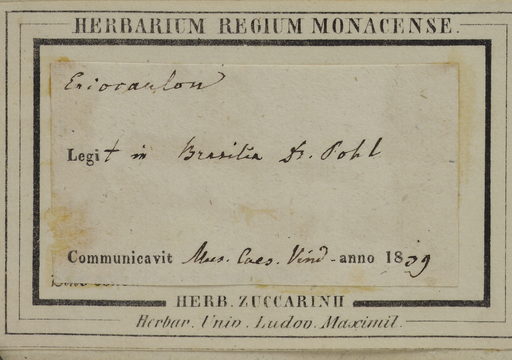 HERBARIUM REGIUM MONACENSE.
Eriocaulon
Legit in Brasilia Dr. Pohl
Communicavit Mus. Caes. Vind. anno 1839
HERB. ZUCCARINII
Herbar. Univ. Ludov. Maximil.